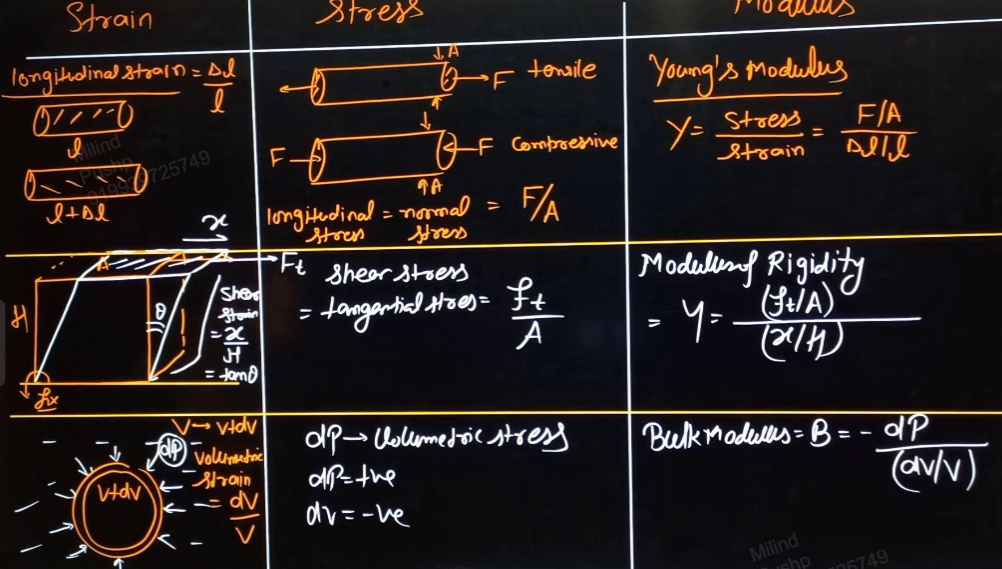 Strain
Stress
Modulus
longitudinal strain = Δl/l
l
l+Δl
A
F tensile
F F compressive
A
longitudinal stress = normal stress = F/A
Young's Modulus
Y = Stress/Strain = F/A / Δl/l
x
A
A
H
θ
Shear
Strain
= x/H
= tanθ
fix
Ft
Shear stress
= tangential stres = ft/A
Modulus of Rigidity
= Y = (ft/A) / (x/H)
V → V+dV
dP
Volumetric
Strain
= dV/V
V+dV
dP → Volumetric stress
dP = +ve
dv = -ve
Bulk Modulus = B = - dP / (dV/V)
Milind
Pushp
725749
Milind
Pushp
65749